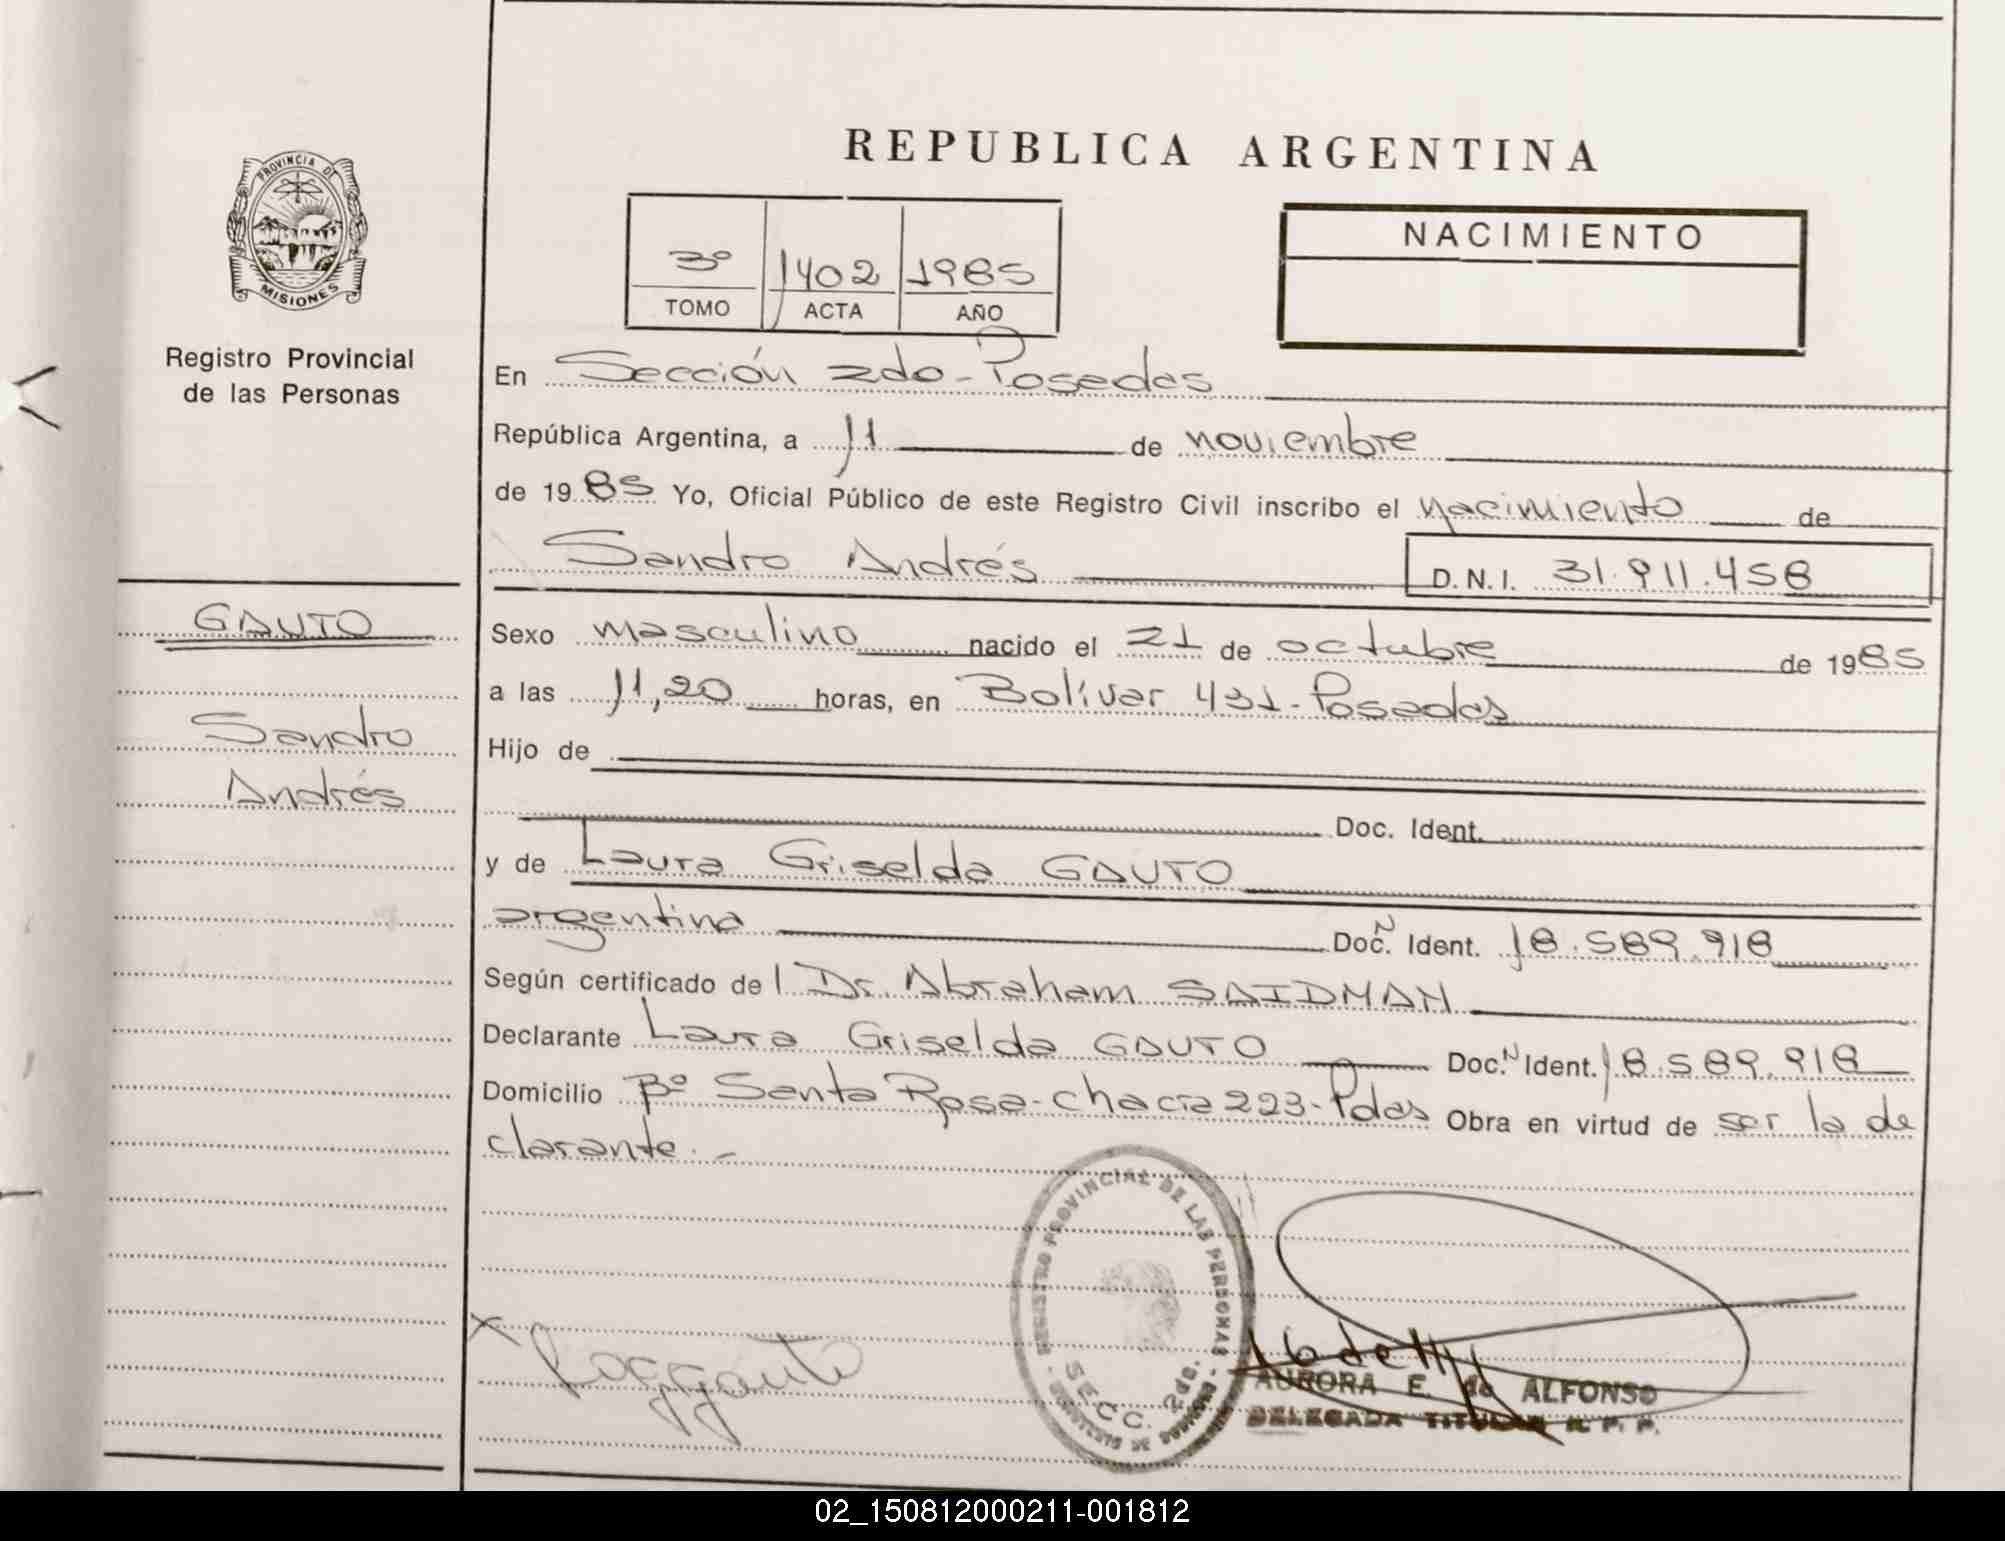 PROVINCIA DE
MISIONES
Registro Provincial
de las Personas
GAUTO
Sandro
Andrés
REPUBLICA ARGENTINA
3º 1402 1985
TOMO ACTA AÑO
NACIMIENTO
En Sección 2da - Posadas
República Argentina, a 11 de noviembre
de 1985 Yo, Oficial Público de este Registro Civil inscribo el nacimiento de
Sandro Andrés D.N.I. 31.911.458
Sexo masculino nacido el 21 de octubre de 1985
a las 11,20 horas, en Bolívar 431 - Posadas
Hijo de
Doc. Ident.
y de Laura Griselda GAUTO
argentina Doc. N Ident. 18.589.918
Según certificado de l Dr. Abraham SAIDMAN
Declarante Laura Griselda GAUTO Doc. N Ident. 18.589.918
Domicilio Bº Santa Rosa - chacra 223 - Pdas Obra en virtud de ser la de
clarante. -
REGISTRO PROVINCIAL DE LAS PERSONAS
SECC. 2da.
AURORA E. de ALFONSO
DELEGADA TITULAR R. P. P.
02_150812000211-001812